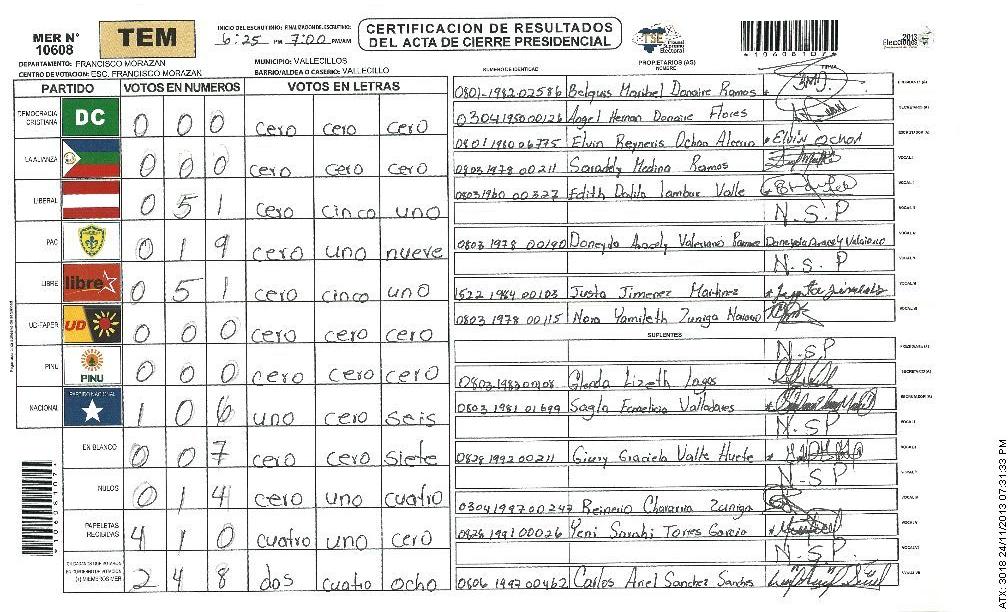 MER N°
10608
TEM
INICIO DEL ESCRUTINIO: FINALIZACION DE ESCRUTINIO:
6:25 PM 7:00 PM/AM
CERTIFICACION DE RESULTADOS
DEL ACTA DE CIERRE PRESIDENCIAL
TSE Tribunal Supremo Electoral
*10608107*
2013
Elecciones
DEPARTAMENTO: FRANCISCO MORAZAN
MUNICIPIO: VALLECILLOS
CENTRO DE VOTACION: ESC. FRANCISCO MORAZAN
BARRIO/ALDEA O CASERIO: VALLECILLO
PARTIDO VOTOS EN NUMEROS VOTOS EN LETRAS
NUMERO DE IDENTIDAD PROPIETARIOS (AS) NOMBRE FIRMA
DEMOCRACIA CRISTIANA DC 0 0 0 cero cero cero
LA ALIANZA 0 0 0 cero cero cero
LIBERAL 0 5 1 cero cinco uno
PAC 0 1 9 cero uno nueve
LIBRE libre 0 5 1 cero cinco uno
UD-FAPER UD 0 0 0 cero cero cero
PINU PINU 0 0 0 cero cero cero
NACIONAL PARTIDO NACIONAL 1 0 6 uno cero seis
EN BLANCO 0 0 7 cero cero siete
NULOS 0 1 4 cero uno cuatro
PAPELETAS RECIBIDAS 4 1 0 cuatro uno cero
2 4 8 dos cuatro ocho
0801-1982-02586 Belquis Maribel Donaire Ramos
0304 1980 00126 Angel Hernan Donaire Flores
0801 1980 06775 Elvin Reyneris Ochoa Elvin Ochoa
0803 1978 00211 Medina Ramos
0803 1960 00327 Edith Dalila Valle
N.S.P
0803 1978 00190 Doneyda Aracely Valeriano
N.S.P
1522 1984 00103 Justa Jimenez Martinez
0803 1978 00115 Nora Yamileth Zuniga
SUPLENTES
N.S.P
Glenda Lizeth Lagos
0803 1981 01699 Valladares
N.S.P
0828 1992 00211 Graciela Valle
N.S.P
0304 1997 00247 Zuniga
0828 1991 00026 Yeni Sarahi Torres Garcia
N.S.P.
0806 1992 00462 Carlos Ariel Sanchez
*10608107*
ATX: 3018 24/11/2013 07:31:33 PM